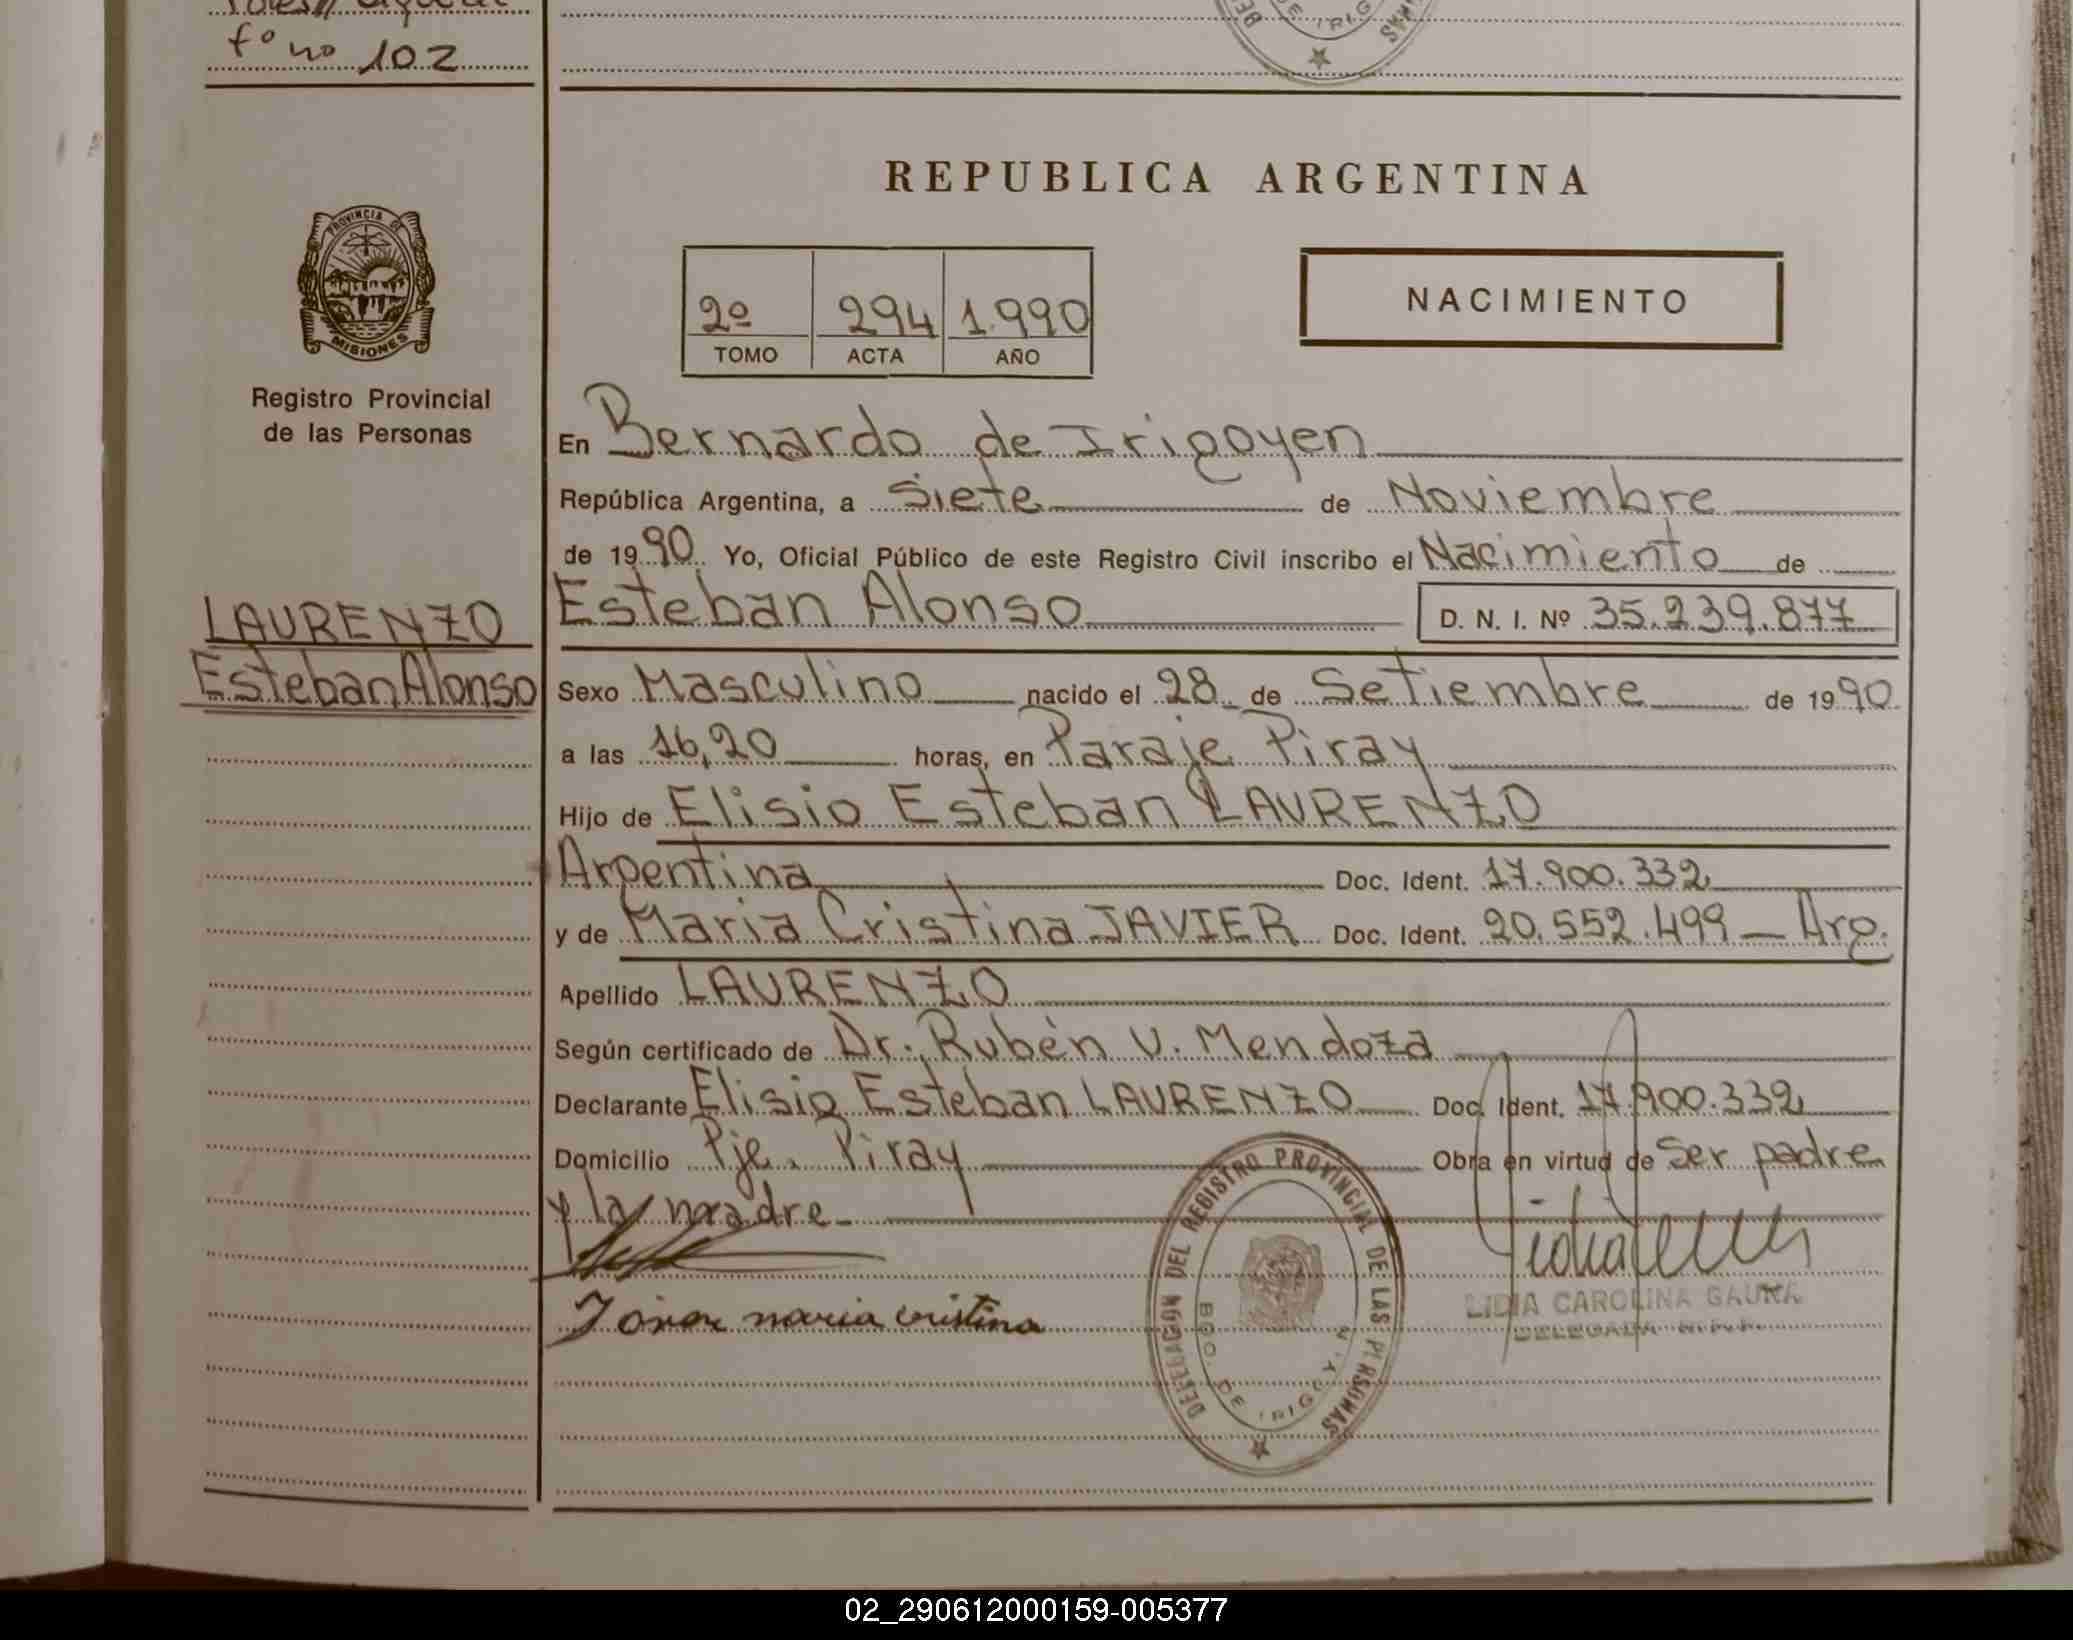 fº nº 102
REPUBLICA ARGENTINA
PROVINCIA DE
MISIONES
Registro Provincial
de las Personas
2º 294 1.990
TOMO ACTA AÑO
NACIMIENTO
En Bernardo de Irigoyen
República Argentina, a Siete de Noviembre
de 1990 Yo, Oficial Público de este Registro Civil inscribo el Nacimiento de
LAURENZO
Esteban Alonso
Esteban Alonso D. N. I. Nº 35.239.877
Sexo Masculino nacido el 28 de Setiembre de 1990
a las 16,20 horas, en Paraje Piray
Hijo de Elisio Esteban LAURENZO
Argentina Doc. Ident. 17.900.332
y de Maria Cristina JAVIER Doc. Ident. 20.552.499 – Arg.
Apellido LAURENZO
Según certificado de Dr. Rubén V. Mendoza
Declarante Elisio Esteban LAURENZO Doc. Ident. 17.900.332
Domicilio Pje. Piray Obra en virtud de Ser padre
y la madre
maria cristina
DELEGACION DEL REGISTRO PROVINCIAL DE LAS PERSONAS
BDO. DE IRIGOYEN
LIDIA CAROLINA GAUNA
DELEGADA
02_290612000159-005377